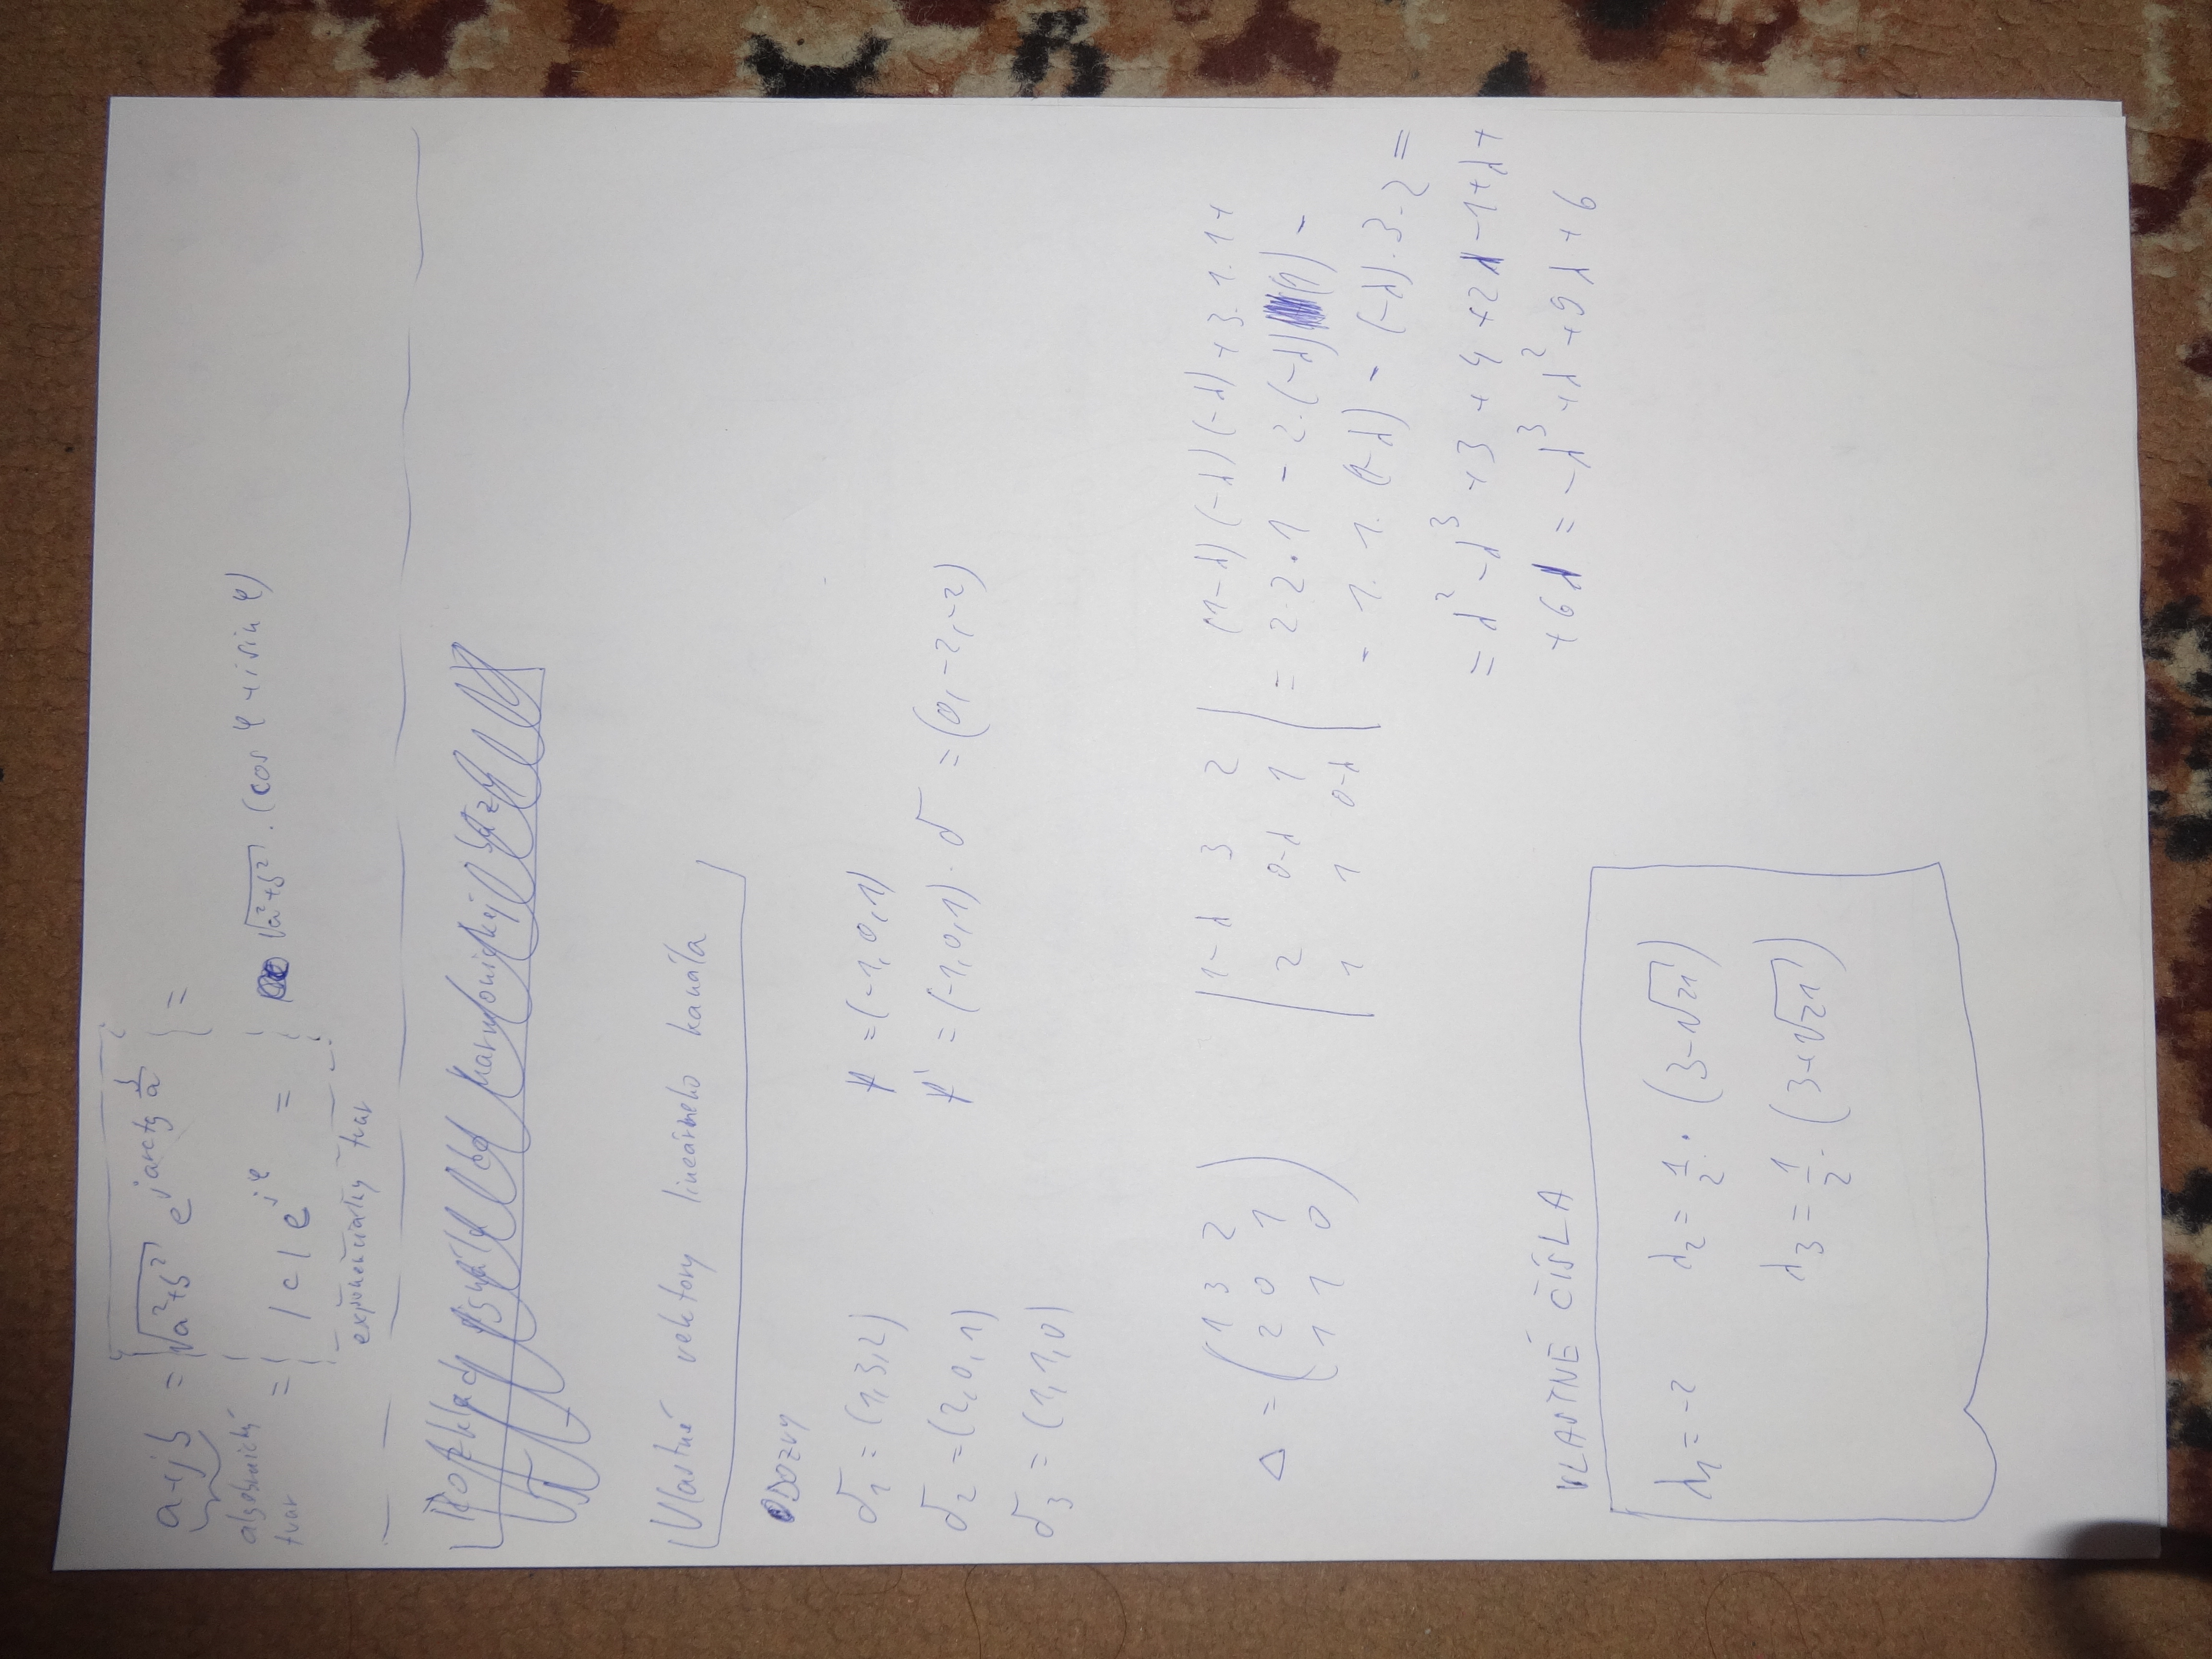 a+jb = √(a²+b²) e^(j arctg b/a) =
algebraický
tvar
= |c| e^(jφ) = √(a²+b²) . (cos φ + i sin φ)
exponenciálny tvar
Rozklad signálu do harmonickej bázy
Vlastné vektory lineárneho kanála
ODOZVY
δ₁ = (1,3,2)
δ₂ = (2,0,1)
δ₃ = (1,1,0)
= (-1,0,1)
= (-1,0,1) . δ = (0,-2,-2)
Δ = (1 3 2
2 0 1
1 1 0)
|1-λ 3 2
2 0-λ 1
1 1 0-λ|
(1-λ)(-λ)(-λ) + 3.1.1 +
= 2.2.1 - 2.(-λ)(1) -
- 1.1.(1-λ) - (-λ).3.2 =
= λ² - λ³ + 3 + 4 + 2λ - 1 + λ +
+ 6λ = -λ³ + λ² + 9λ + 6
VLASTNÉ ČÍSLA
λ₁ = -2 λ₂ = 1/2 . (3-√21)
λ₃ = 1/2 . (3+√21)